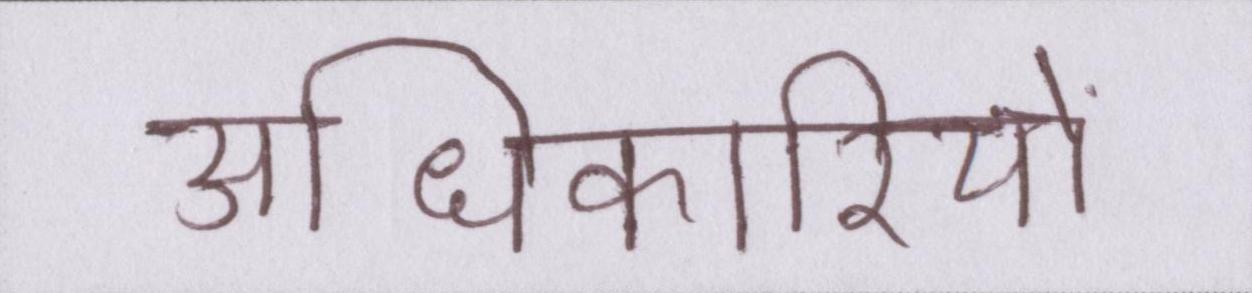 अधिकारियों